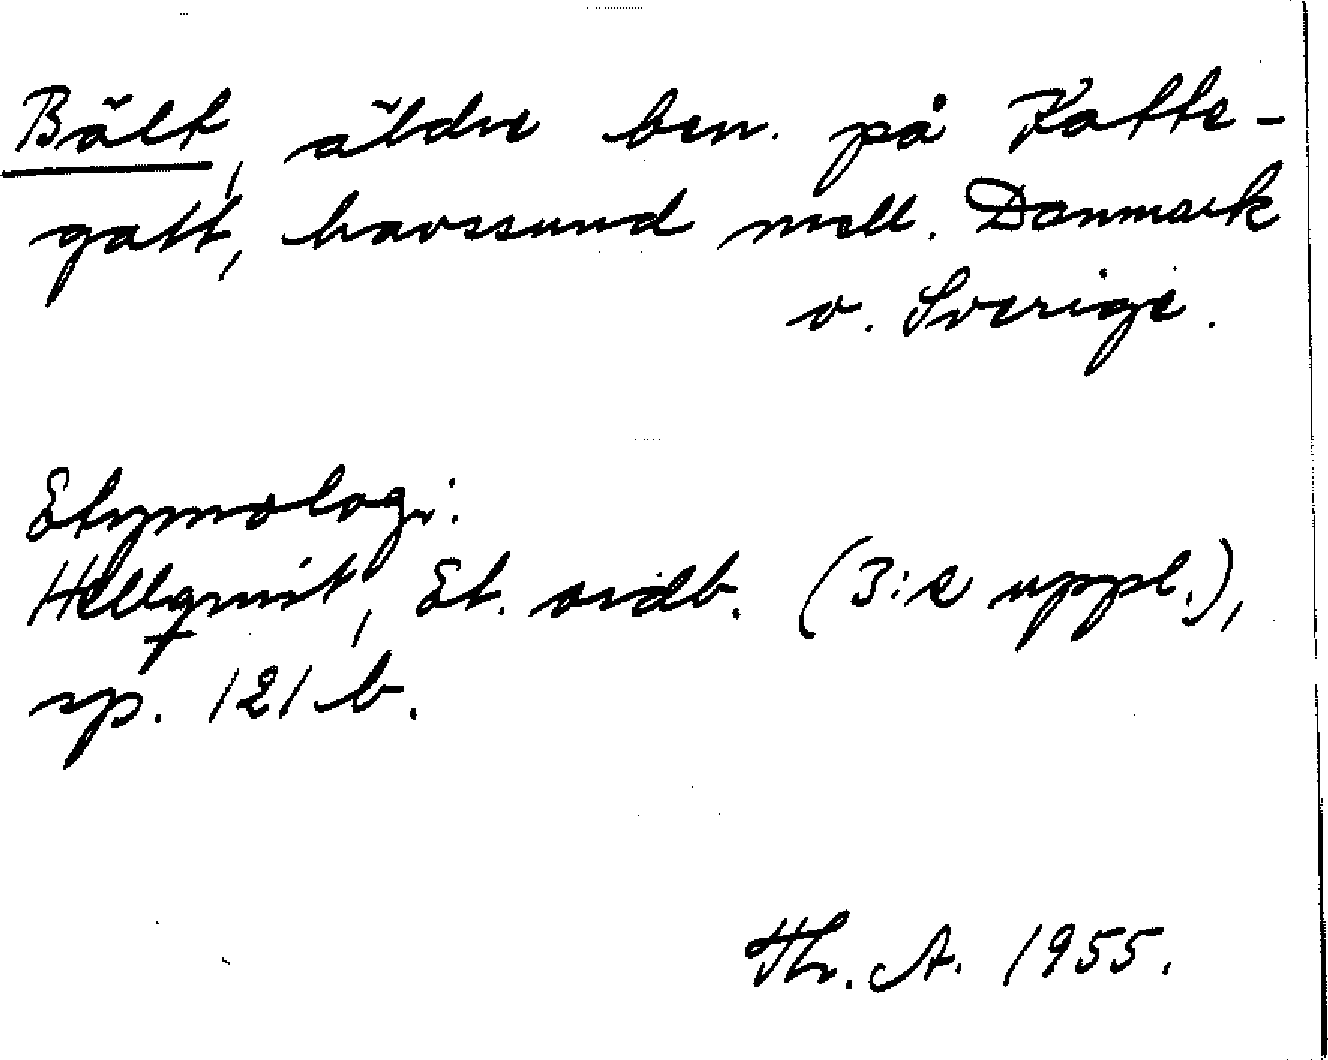 Bält, äldre ben. på Katte-
gatt, havssund mell. Danmark
o. Sverige.
Etymologi:
Hellquist, Et. ordb. (3:e uppl.),
sp. 121 b.
Th. A. 1955.